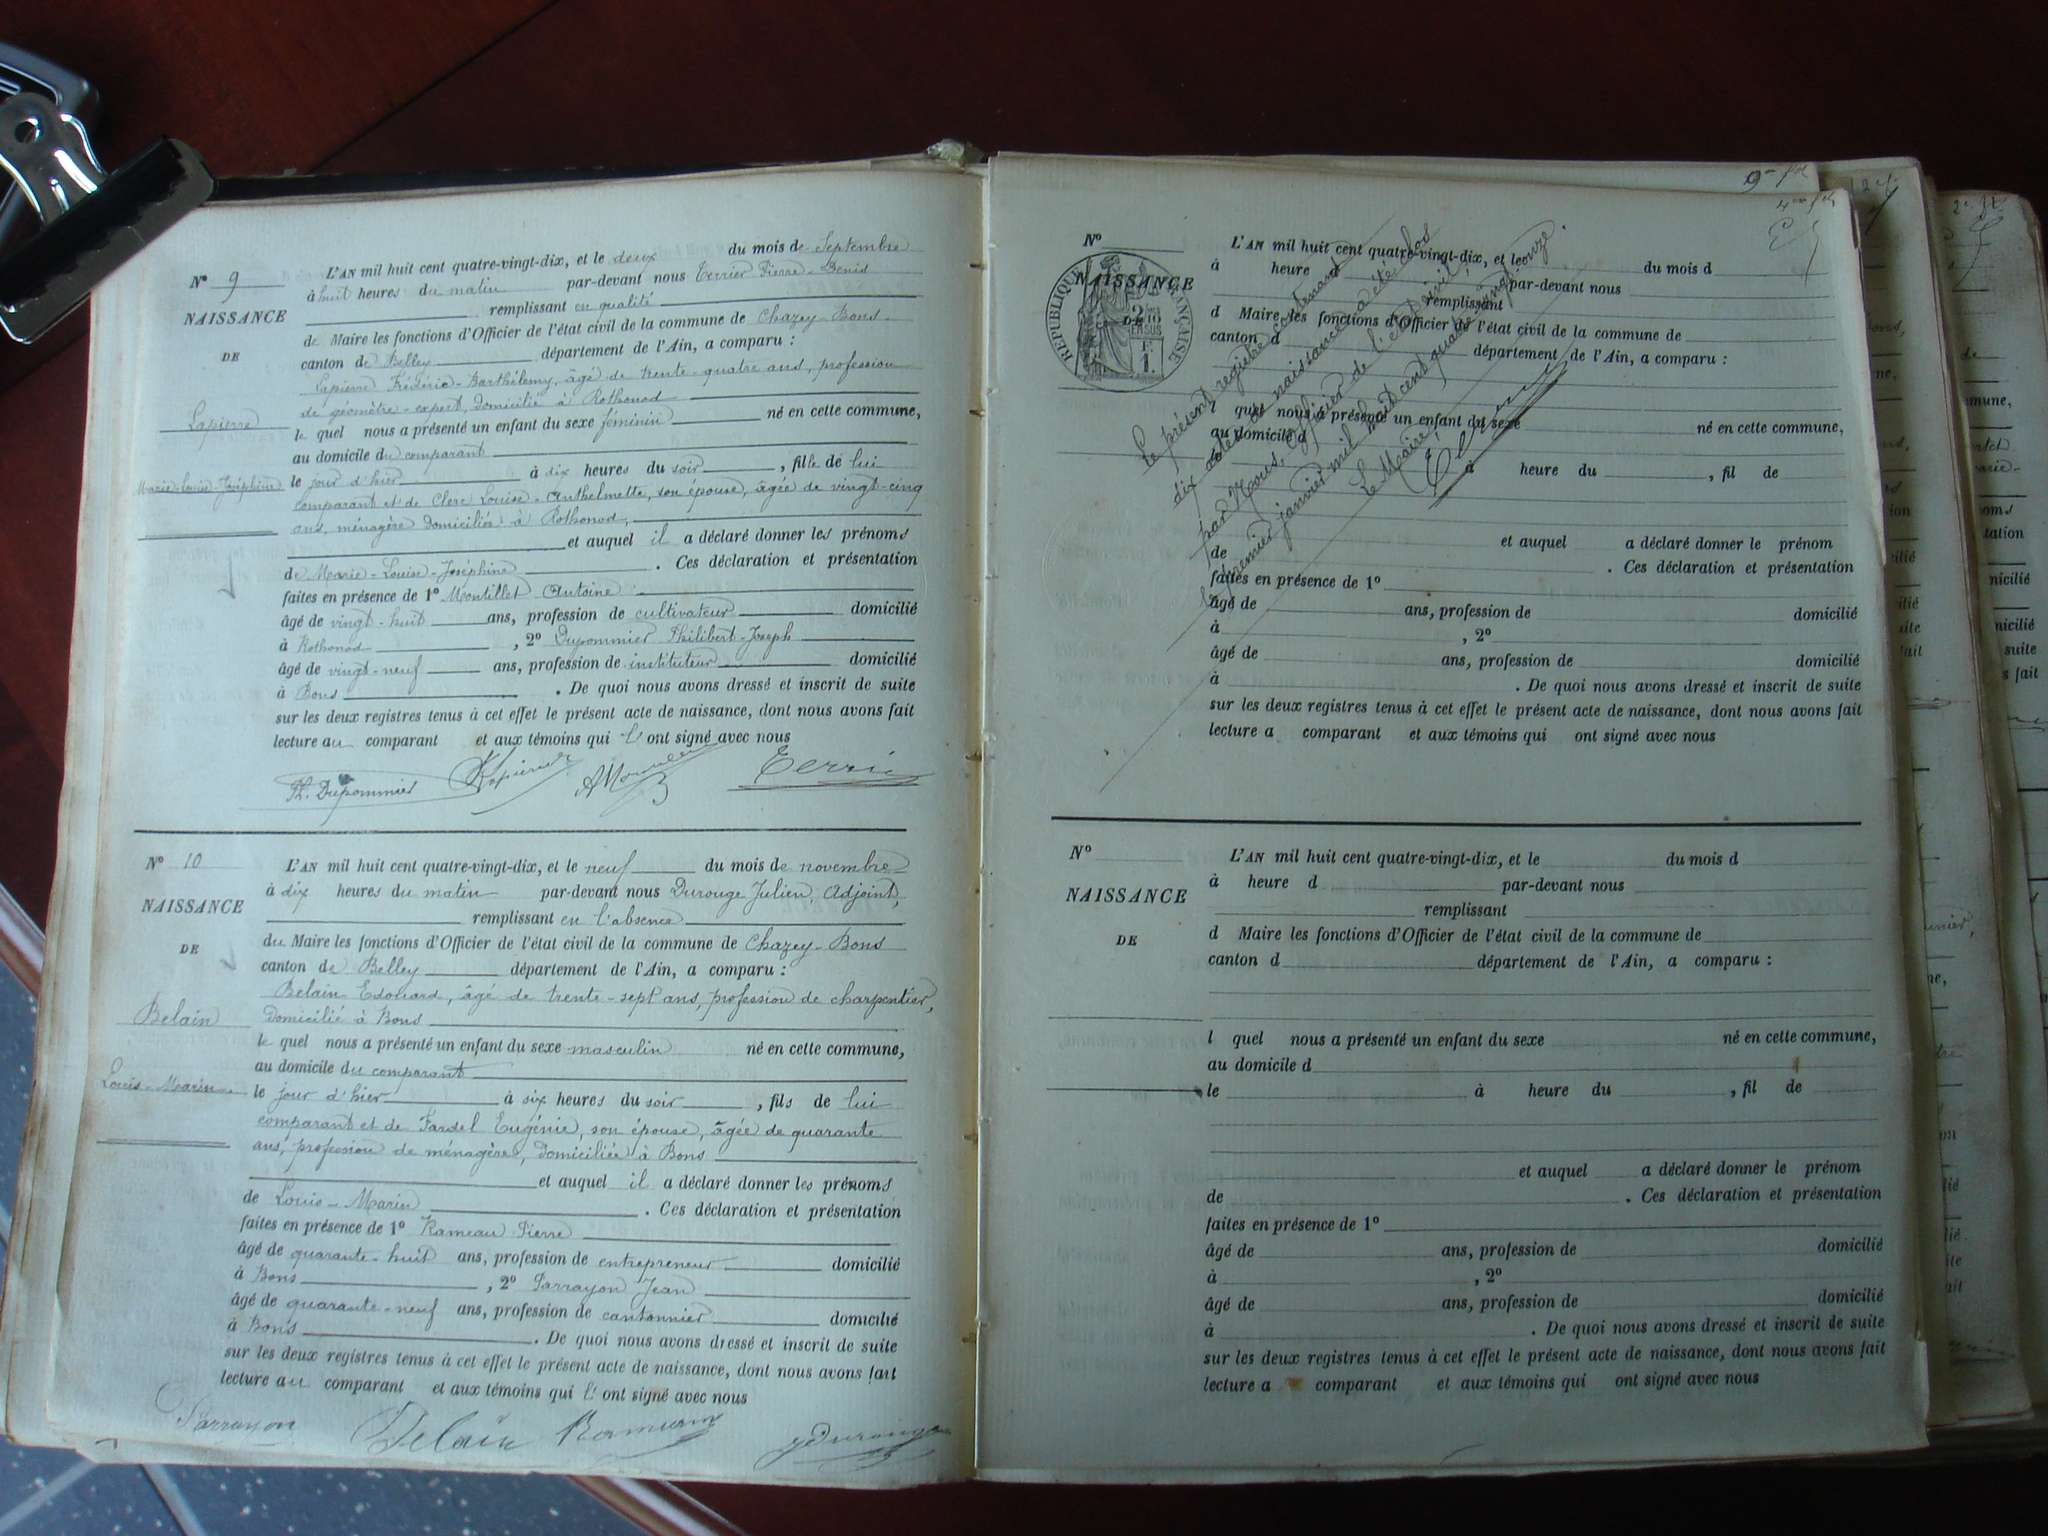 N° 9
NAISSANCE
DE
Lapierre
Marie-Louise-Joséphine
L'AN mil huit cent quatre-vingt-dix, et le deux du mois de Septembre
à huit heures du matin par-devant nous Terrier Pierre-Denis
remplissant en qualité
de Maire les fonctions d'Officier de l'état civil de la commune de Chazey-Bons
canton de Belley département de l'Ain, a comparu :
Lapierre Frédéric-Barthélemy, âgé de trente-quatre ans, profession
de géomètre-expert, domicilié à Rothonod
le quel nous a présenté un enfant du sexe féminin né en cette commune,
au domicile du comparant
le jour d'hier à dix heures du soir, fille de lui
comparant et de Clerc Louise-Anthelmette, son épouse, âgée de vingt-cinq
ans, ménagère domiciliés à Rothonod,
et auquel il a déclaré donner les prénoms
de Marie-Louise-Joséphine. Ces déclaration et présentation
faites en présence de 1° Montillet Antoine
âgé de vingt-huit ans, profession de cultivateur domicilié
à Rothonod, 2° Dupommier Philibert-Joseph
âgé de vingt-neuf ans, profession de instituteur domicilié
à Bons. De quoi nous avons dressé et inscrit de suite
sur les deux registres tenus à cet effet le présent acte de naissance, dont nous avons fait
lecture au comparant et aux témoins qui l'ont signé avec nous
Ph. Dupommier Lapierre Terrier
N° 10
NAISSANCE
DE
Belain
Louis-Marin
L'AN mil huit cent quatre-vingt-dix, et le neuf du mois de novembre
à dix heures du matin par-devant nous Durouge Julien, Adjoint,
remplissant en l'absence
du Maire les fonctions d'Officier de l'état civil de la commune de Chazey-Bons
canton de Belley département de l'Ain, a comparu :
Belain Edouard, âgé de trente-sept ans, profession de charpentier,
domicilié à Bons
le quel nous a présenté un enfant du sexe masculin né en cette commune,
au domicile du comparant
le jour d'hier à six heures du soir, fils de lui
comparant et de Fardel Eugénie, son épouse, âgée de quarante
ans, profession de ménagère, domiciliée à Bons
et auquel il a déclaré donner les prénoms
de Louis-Marin. Ces déclaration et présentation
faites en présence de 1° Rameau Pierre
âgé de quarante-huit ans, profession de entrepreneur domicilié
à Bons, 2° Parrayon Jean
âgé de quarante-neuf ans, profession de cantonnier domicilié
à Bons. De quoi nous avons dressé et inscrit de suite
sur les deux registres tenus à cet effet le présent acte de naissance, dont nous avons fait
lecture au comparant et aux témoins qui l'ont signé avec nous
Parrayon Belain Rameau JDurouge
N°
NAISSANCE
DE
RÉPUBLIQUE FRANÇAISE
L'AN mil huit cent quatre-vingt-dix, et le du mois d
à heure d par-devant nous
remplissant
d Maire les fonctions d'Officier de l'état civil de la commune de
canton d département de l'Ain, a comparu :
quel nous a présenté un enfant du sexe né en cette commune,
au domicile d
à heure du , fil de
et auquel a déclaré donner le prénom
de . Ces déclaration et présentation
faites en présence de 1°
âgé de ans, profession de domicilié
à , 2°
âgé de ans, profession de domicilié
à . De quoi nous avons dressé et inscrit de suite
sur les deux registres tenus à cet effet le présent acte de naissance, dont nous avons fait
lecture a comparant et aux témoins qui ont signé avec nous
Le présent registre contenant
dix actes de naissances a été clos
par Nous, Officier de l'état civil,
le premier janvier mil huit cent quatre-vingt-onze.
Le Maire,
N°
NAISSANCE
DE
L'AN mil huit cent quatre-vingt-dix, et le du mois d
à heure d par-devant nous
remplissant
d Maire les fonctions d'Officier de l'état civil de la commune de
canton d département de l'Ain, a comparu :
l quel nous a présenté un enfant du sexe né en cette commune,
au domicile d
le à heure du , fil de
et auquel a déclaré donner le prénom
de . Ces déclaration et présentation
faites en présence de 1°
âgé de ans, profession de domicilié
à , 2°
âgé de ans, profession de domicilié
à . De quoi nous avons dressé et inscrit de suite
sur les deux registres tenus à cet effet le présent acte de naissance, dont nous avons fait
lecture a comparant et aux témoins qui ont signé avec nous